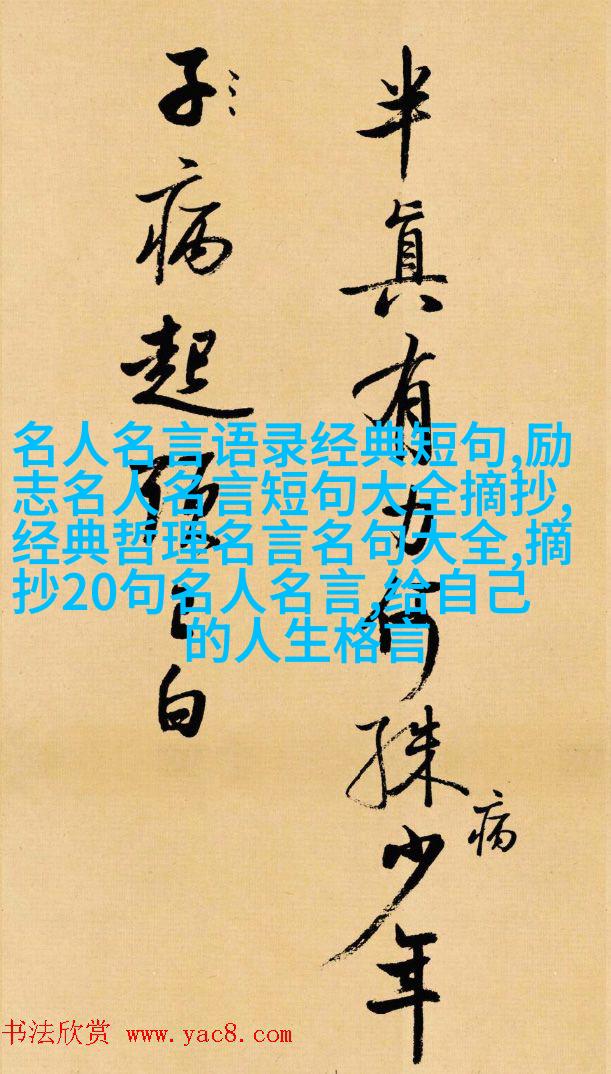 半真有何殊少年
病
子病起須白
名人名言语录经典短句,励
志名人名言短句大全摘抄,
经典哲理名言名句大全,摘
抄20句名人名言,给自己
的人生格言
书法欣赏 www.yac8.com